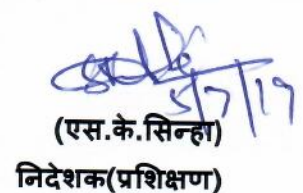 5/7/19
(एस.के.सिन्हा)
निदेशक(प्रशिक्षण)